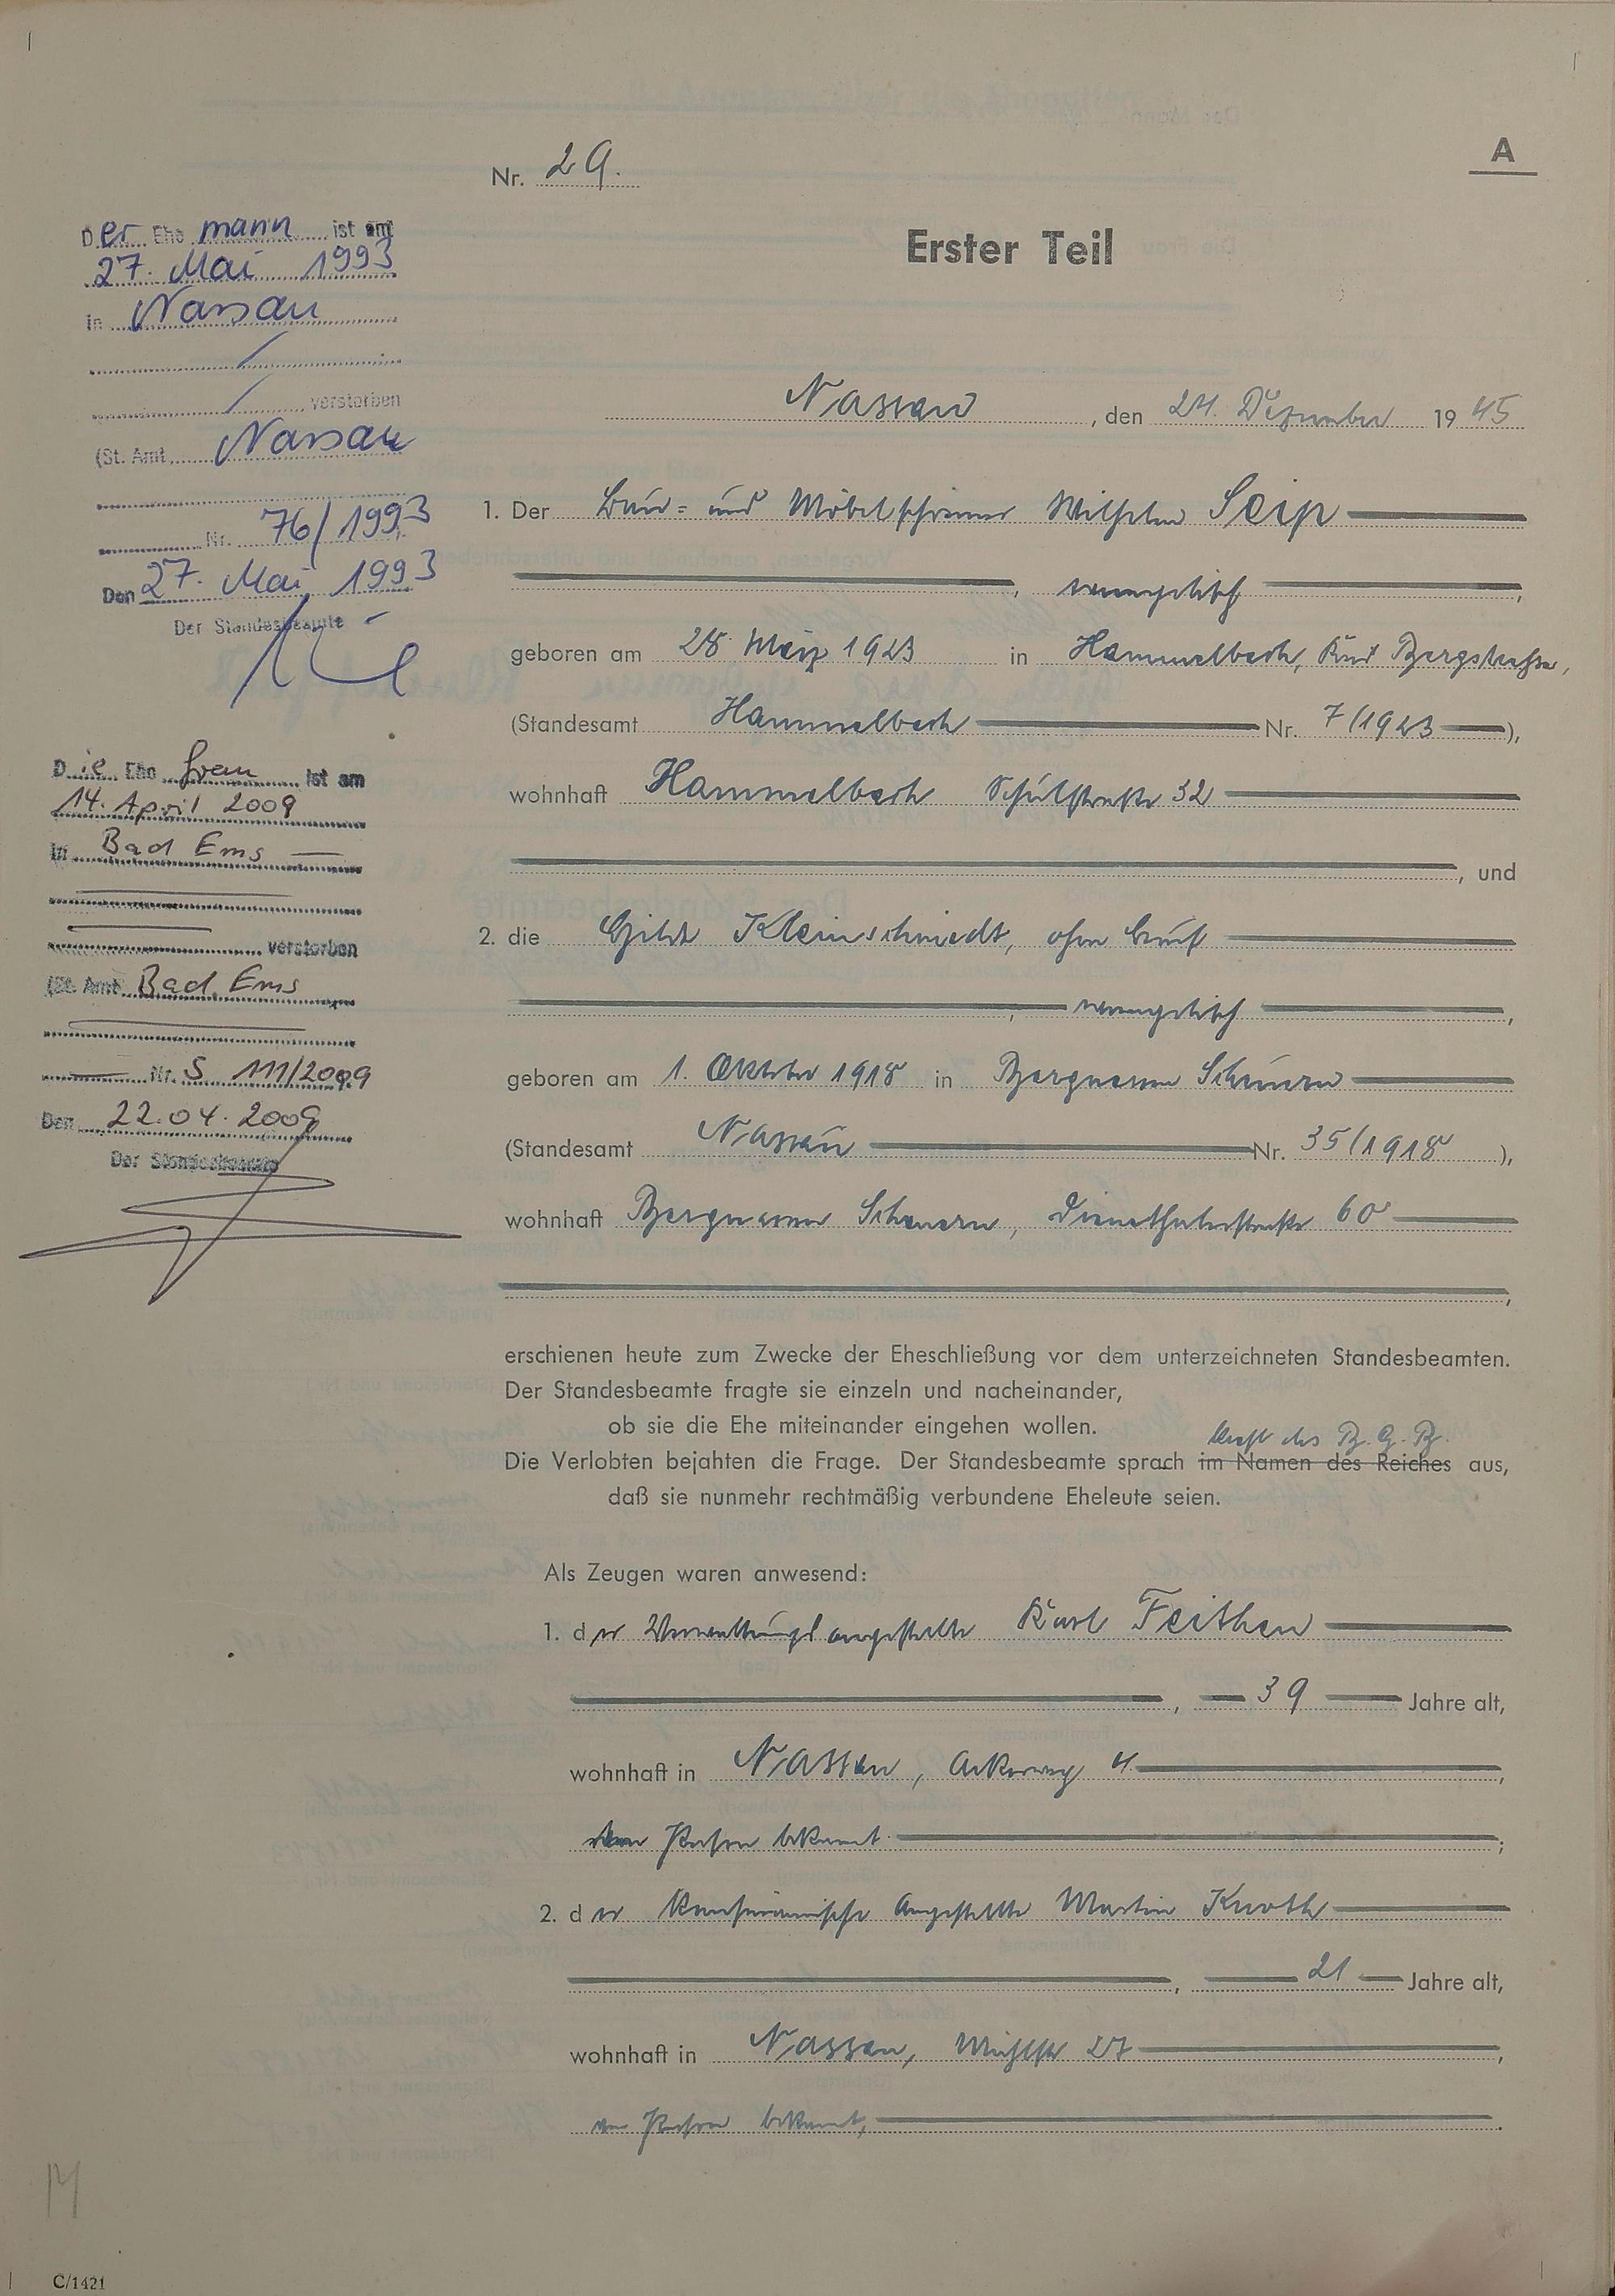 A
Nr. 29.
Erster Teil
Nassau, den 24. Dezember 1945
1. Der Bau- und Möbelschreiner Wilhelm Seip
, evangelisch,
geboren am 28. März 1923 in Hammelbach, Kreis Bergstraße,
(Standesamt Hammelbach Nr. 7/1923),
wohnhaft Hammelbach Schulstraße 32
, und
2. die Kleinschmidt, ohne Beruf
, evangelisch,
geboren am 1. Oktober 1918 in Bergnassau Scheuern
(Standesamt Nassau Nr. 35/1918),
wohnhaft Bergnassau Scheuern, Dienethalerstraße 60
,
erschienen heute zum Zwecke der Eheschließung vor dem unterzeichneten Standesbeamten.
Der Standesbeamte fragte sie einzeln und nacheinander,
ob sie die Ehe miteinander eingehen wollen.
kraft des B. G. B.
Die Verlobten bejahten die Frage. Der Standesbeamte sprach im Namen des Reiches aus,
daß sie nunmehr rechtmäßig verbundene Eheleute seien.
Als Zeugen waren anwesend:
1. der Verwaltungsangestellte Karl Feithen
, 39 Jahre alt,
wohnhaft in Nassau, Ackerweg 4
Person bekannt;
2. der kaufmännische Angestellte Martin Knoth
, 21 Jahre alt,
wohnhaft in Nassau, Mühlstr 27,
Person bekannt,
Der Ehemann ist am
27. Mai 1993
in Nassau
verstorben
(St. Amt Nassau
Nr. 76/1993
Den 27. Mai 1993
Der Standesbeamte
Die Ehefrau ist am
14. April 2009
in Bad Ems
verstorben
(St. Amt Bad Ems
Nr. S 111/2009
Den 22.04.2009
Der Standesbeamte
C/1421